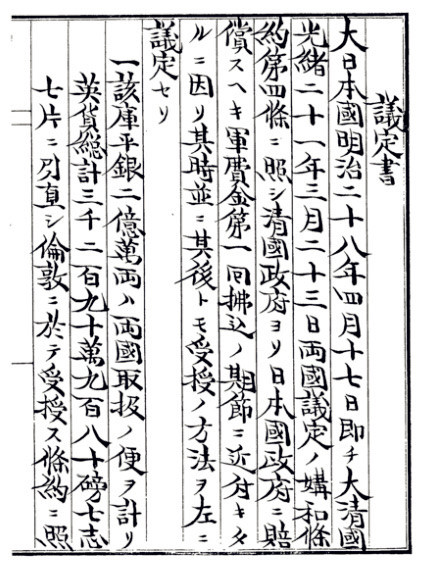 議定書
大日本國明治二十八年四月十七日即チ大清國
光緒二十一年三月二十三日両國議定ノ媾和條
約第四條ニ照シ清國政府ヨリ日本國政府ニ賠
償スヘキ軍費金第一回拂込ノ期節ニ近付キタ
ルニ因リ其時並ニ其後トモ受授ノ方法ヲ左ニ
議定セリ
一該庫平銀二億萬両ハ両國取扱ノ便ヲ計リ
英貨総計三千二百九十萬九百八十磅七志
七片ニ引直シ倫敦ニ於テ受授ス條約ニ照